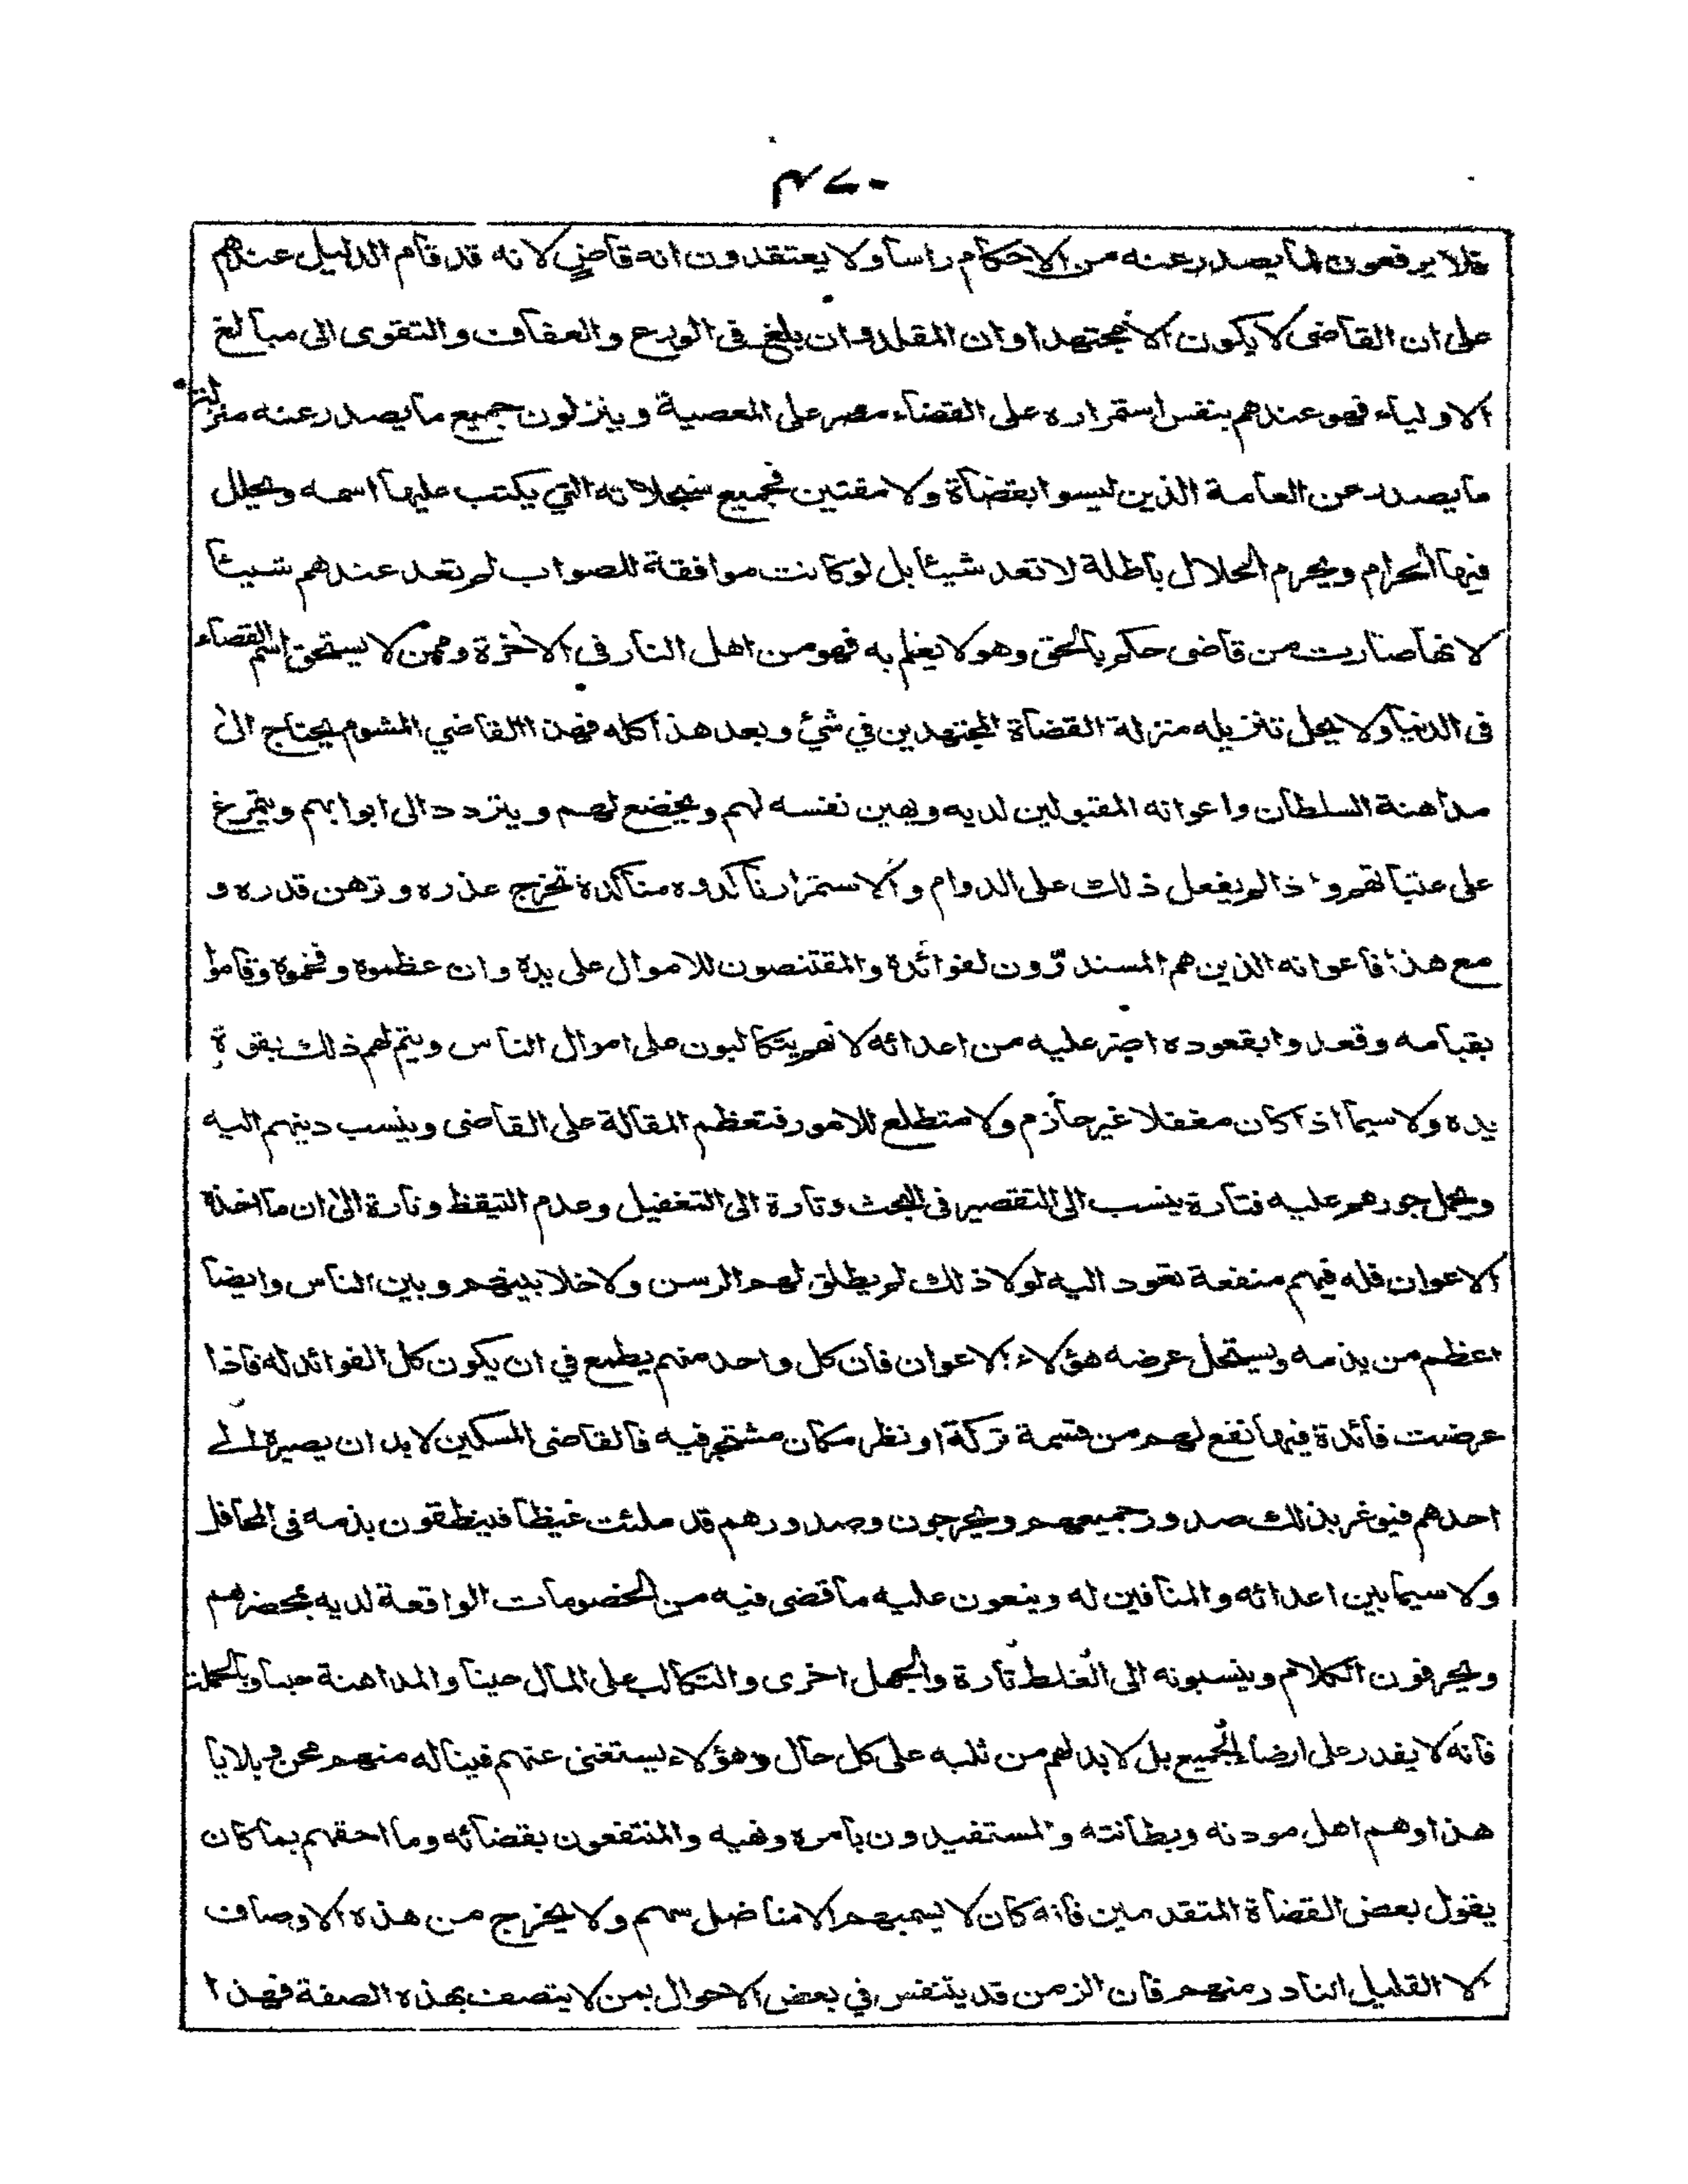 ٤٧٠
فلا يرفعون لما يصدر عنه من الاحكام راسا ولا يعتقدون انه قاض لانه قد قام الدليل عندهم
على ان القاضى لا يكون الا مجتهدا وان المقلد وان بلغ فى الورع والعفاف والتقوى الى مبالغ
الاولياء فهو عندهم بنفس استمراره على القضاء مصر على المعصية وينزلون جميع ما يصدر عنه منزلة
ما يصدر عن العامة الذين ليسوا بقضاة ولا مفتين فجميع سجلاته التي يكتب عليها اسمه ويحلل
فيها الحرام ويحرم الحلال باطلة لا تعد شيئا بل لو كانت موافقة للصواب لم تعد عندهم شيئا
لانها صارت من قاضى حكم بالحق وهو لا يعلم به فهو من اهل النار فى الاخرة وممن لا يستحق اسم القضاء
فى الدنيا ولا يحل تنزيله منزلة القضاة المجتهدين في شئ وبعد هذا كله فهذا القاضي المشوم يحتاج الى
مداهنة السلطان واعوانه المقبولين لديه ويهين نفسه لهم ويخضع لهم ويتردد الى ابوابهم ويتمرغ
على عتباتهم واذا لم يفعل ذلك على الدوام والاستمرار ناكدوه مناكدة تخرج عذره وترهن قدره و
مع هذا فاعوانه الذين هم المستدرون لفوائده والمقتنصون للاموال على يده وان عظموه وفخموه وقاموا
بقيامه وقعدوا بقعوده اضر عليه من اعدائه لانهم يتكالبون على اموال الناس ويتم لهم ذلك بقوة
يده ولا سيما اذا كان مغفلا غير حازم ولا متطلع للامور فتعظم المقالة على القاضى وينسب دينهم اليه
ويحمل جورهم عليه فتارة ينسب الى التقصير فى البحث وتارة الى التغفيل وعدم التيقظ وتارة الى ان ما اخذه
الاعوان فله فيهم منفعة تعود اليه لولا ذلك لم يطلق لهم الرسن ولا خلا بينهم وبين الناس وايضا
اعظم من يذمه ويستحل عرضه هؤلاء الاعوان فان كل واحد منهم يطمع في ان يكون كل الفوائد له فاذا
عرضت فائدة فيها نفع لهم من قسمة تركة او نظر مكان مشتجر فيه فالقاضى المسكين لا بد ان يصيره الى
احدهم فيوغر بذلك صدور جميعهم ويخرجون وصدورهم قد ملئت غيظا فينطقون بذمه فى المحافل
ولا سيما بين اعدائه والمنافين له وينعون عليه ما قضى فيه من الخصومات الواقعة لديه بمحضرهم
ويحرفون الكلام وينسبونه الى الغلط تارة والجهل اخرى والتكالب على المال حينا والمداهنة حينا وبالجملة
فانه لا يقدر على ارضاء الجميع بل لا بد لهم من ثلبه على كل حال وهؤلاء يستغنى عنهم فيناله منهم محن وبلايا
هذا وهم اهل مودته وبطانته والمستفيدون بامره ونهيه والمنتفعون بقضائه وما احقهم بما كان
يقول بعض القضاة المتقدمين فانه كان لا يسميهم الا مناضل سهم ولا يخرج من هذه الاوصاف
الا القليل النادر منهم فان الزمن قد يتنفس في بعض الاحوال بمن لا يتصف بهذه الصفة فهذا